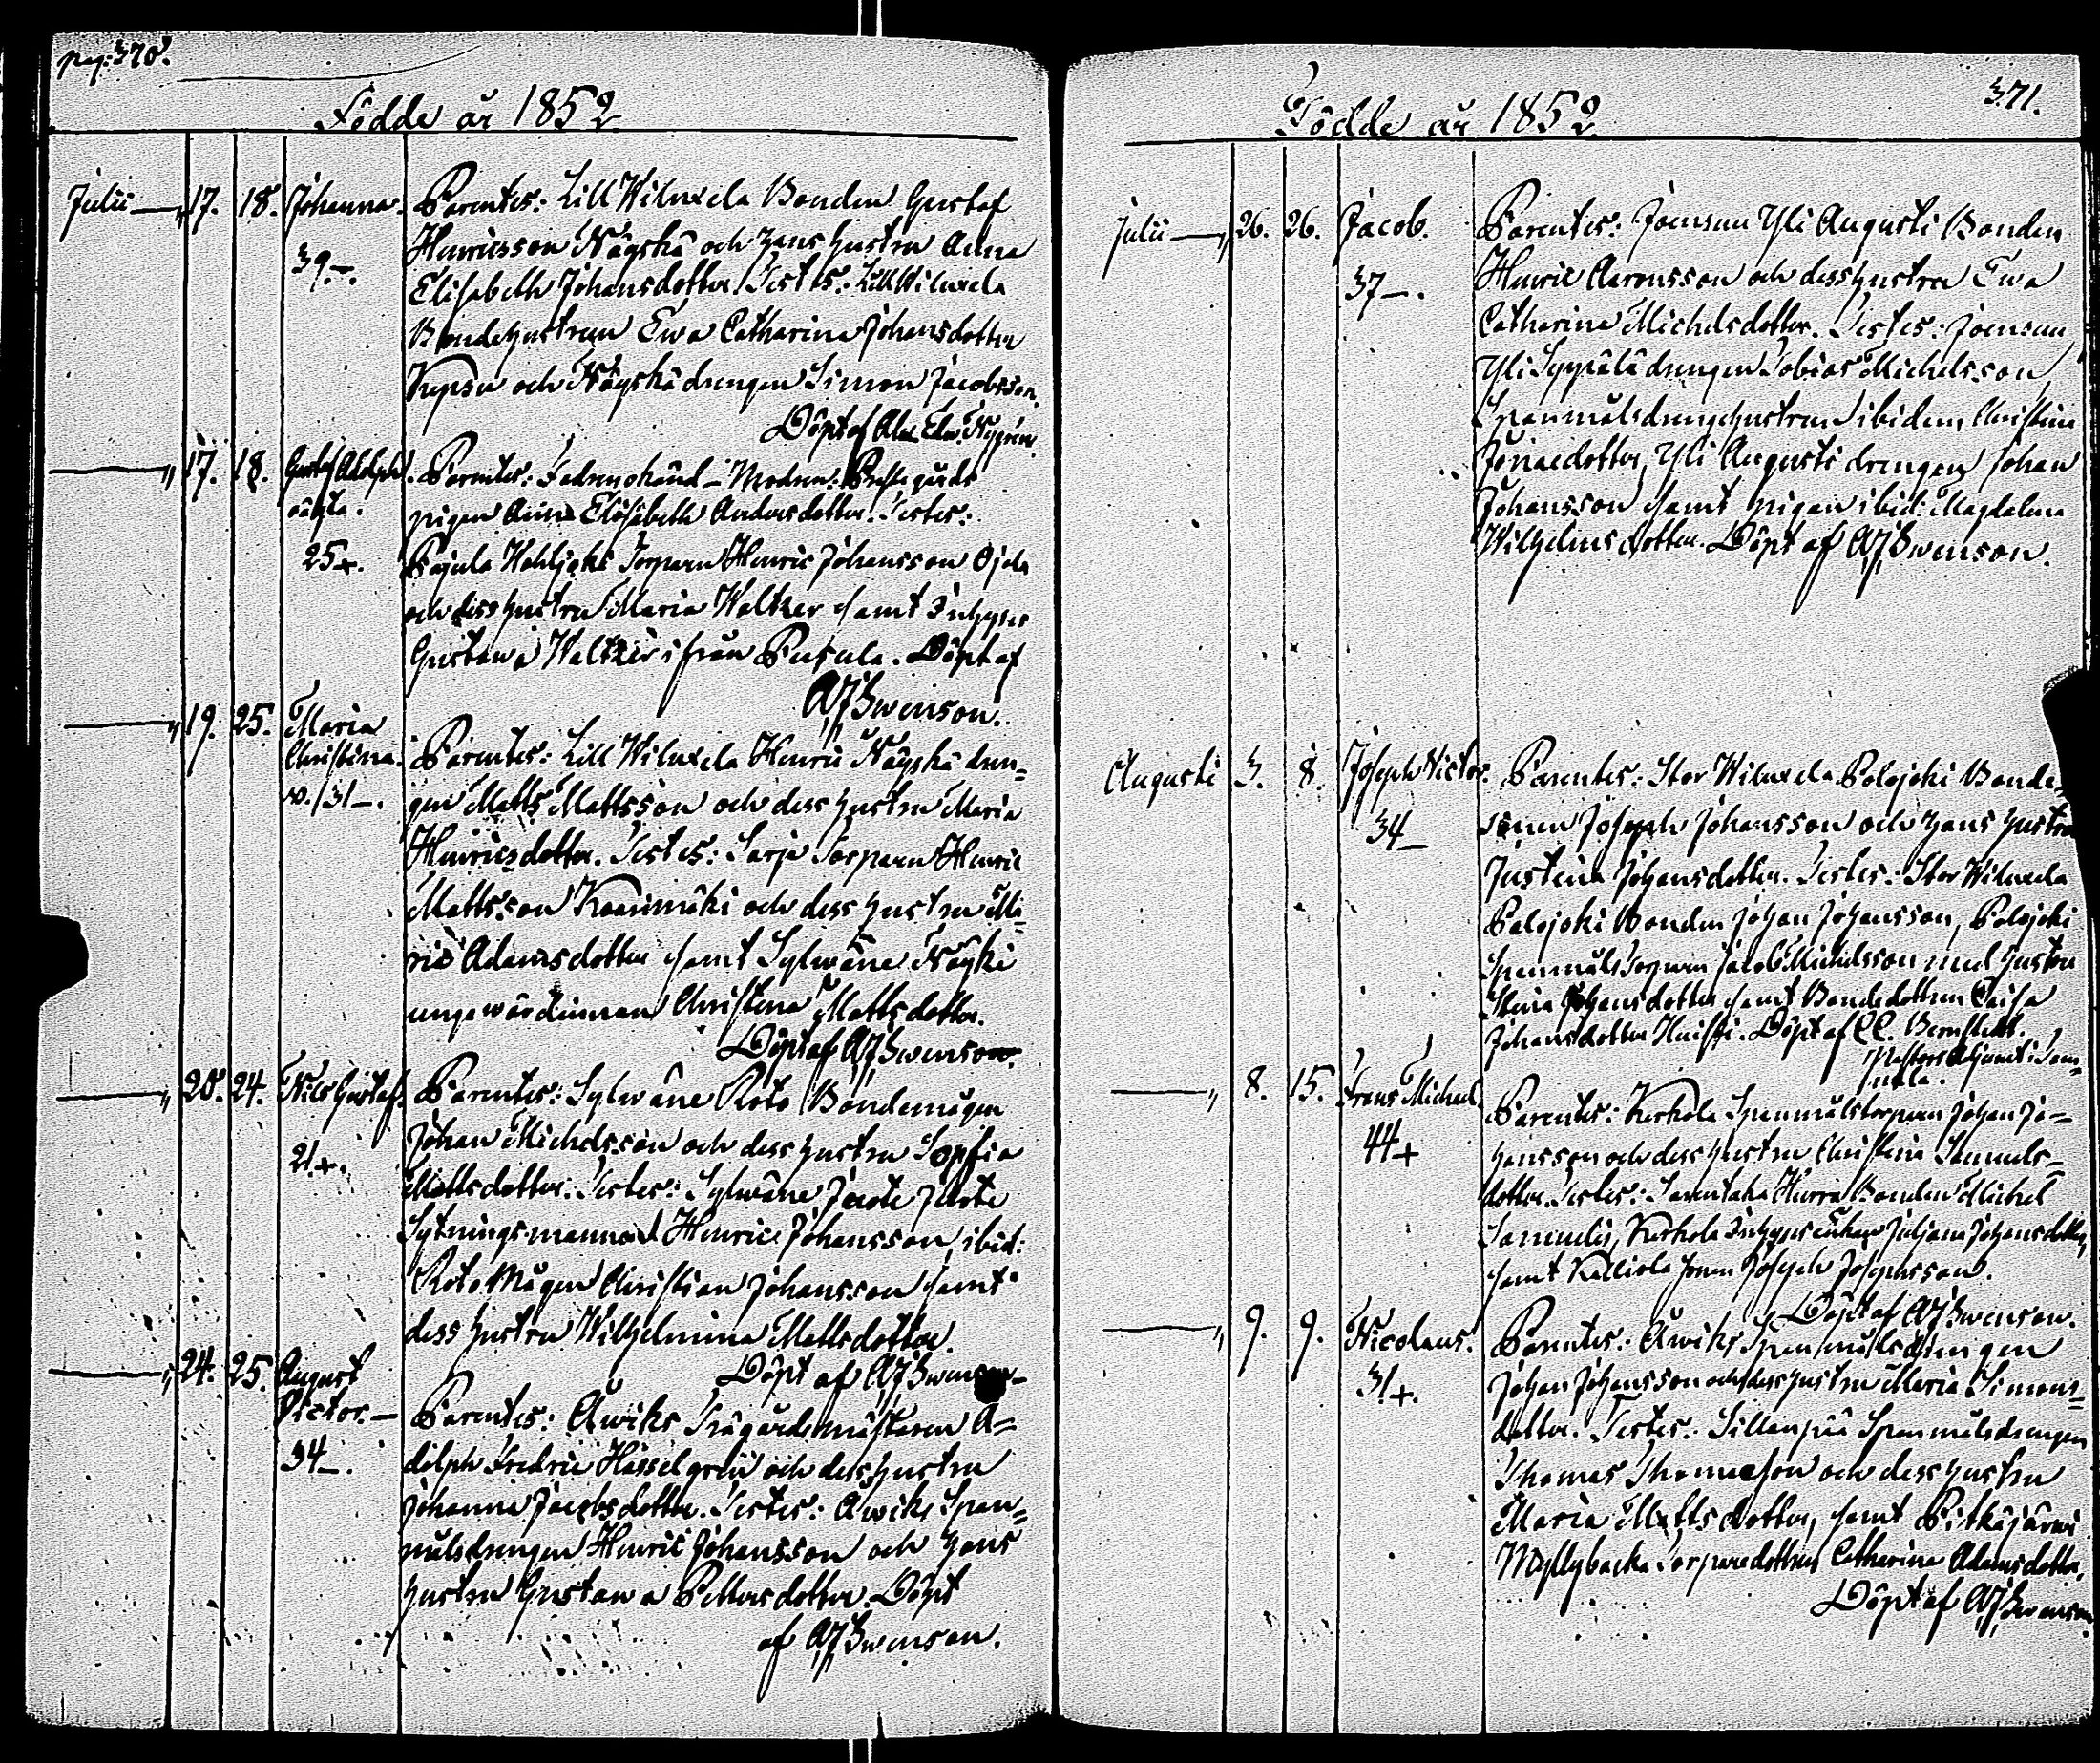 pag: 370.
Födde år 1852
Julii — 17. 18. Johanna. Parentes: Lill Wiluxela Bonden Gustaf
Henricsson Näyskä och hans hustru Anna
39.–. Elisabeth Johansdotter. Testes: Lill Wiluxela
Bondehustrun Ewa Catharina Johansdotter
Kepsu och Näyskä drengen Simon Jacobsson.
Döpt af Alex. Edw. Nygrén.
— „ 17. 18. Gustaf Adolph. Parentes: Fadren okänd – Modren: Prestgårds
oäkta. pigan Anna Elisabeth Andersdotter. Testes:
25+. Pajula Torparn Henric Johansson Ojala
och dess hustru Maria Waltzer samt Inhyses
Gustawa Waltzer ifrån Pusula. Döpt af
AJSwenson.
— „ 19. 25. Maria
Christina. Parentes: Lill Wiluxela Henric Näyskä dren=
o./31–. gen Matts Mattsson och dess hustru Maria
Henricsdotter. Testes: Torparn Henric
Mattsson Kaarimäki och dess hustru Ma=
ria Adamsdotter samt Sylwäne Näyki
unga wärdinnan Christina Mattsdotter.
Döpt af AJSwenson.
— „ 20. 24. Nils Gustaf. Parentes: Sylwäne Roto Bondemågen
Johan Michelsson och dess hustru Sophia
21.+. Mattsdotter. Testes: Sylwäne
Sytningsmannen Henric Johansson, ibid:
Roto Mågen Christian Johansson samt
dess hustru Wilhelmina Mattsdotter.
Döpt af AJSwenson
— „ 24. 25. August
Victor. – Parentes: Awiks Trägårdsmästaren A=
34–. dolph Fredric Hasselgren och dess hustru
Johanna Jacobsdotter. Testes: Awiks Span=
målsdrengen Henric Johansson och hans
hustru Gustawa Pettersdotter. Döpt
af AJSwenson.
371.
Födde år 1852.
Julii — „ 26. 26. Jacob. Parentes: Joensuu Yli Augusti Bonden
37–. Henric Aaronsson och dess hustru Ewa
Catharina Michelsdotter. Testes: Joensuu
Yli Syppälä drengen Tobias Michelsson,
Spanmålsdrengehustrun ibidem, Christina
Jonaedotter, Yli Augusti drengen Johan
Johansson samt pigan ibid: Magdalena
Wilhelmsdotter. Döpt af AJSwenson.
Augusti 3. 8. Joseph Victor. Parentes: Stor Wiluxela Palojoki Bonde=
34– sonen Joseph Johansson och hans hustru
Justina Johansdotter. Testes: Stor Wiluxela
Palojoki Bonden Johan Johansson, Palojoki
Spanmåls Torparn Jacob Michelsson med hustru
Stina Johansdotter samt Bondedottern Caisa
Johansdotter Huisti. Döpt af
Pastors Adjunct i Som=
— „ 8. 15. Frans Michael. Parentes: Kerkola Spanmålstorparn Johan Jo=
44+ hansson och dess hustru Christina Samuels=
dotter. Testes: Bonden Michel
Samuelis, Kerkola Inhyses Enkan Juliana Johansdotter,
samt Kalliola Sonen Joseph Josephsson.
Döpt af AJSwenson.
— „ 9. 9. Nicolaus. Parentes: Awiks Spanmålsdrengen
31+. Johan Johansson och dess hustru Maria Simons=
dotter. Testes: Sillanpää Spanmålsdrengen
Thomas Thomasson och dess hustru
Maria Mattsdotter, samt Pitkäjärwi
Myllybacka Torparedottren Catharina Adamsdotter.
Döpt af AJSwenson